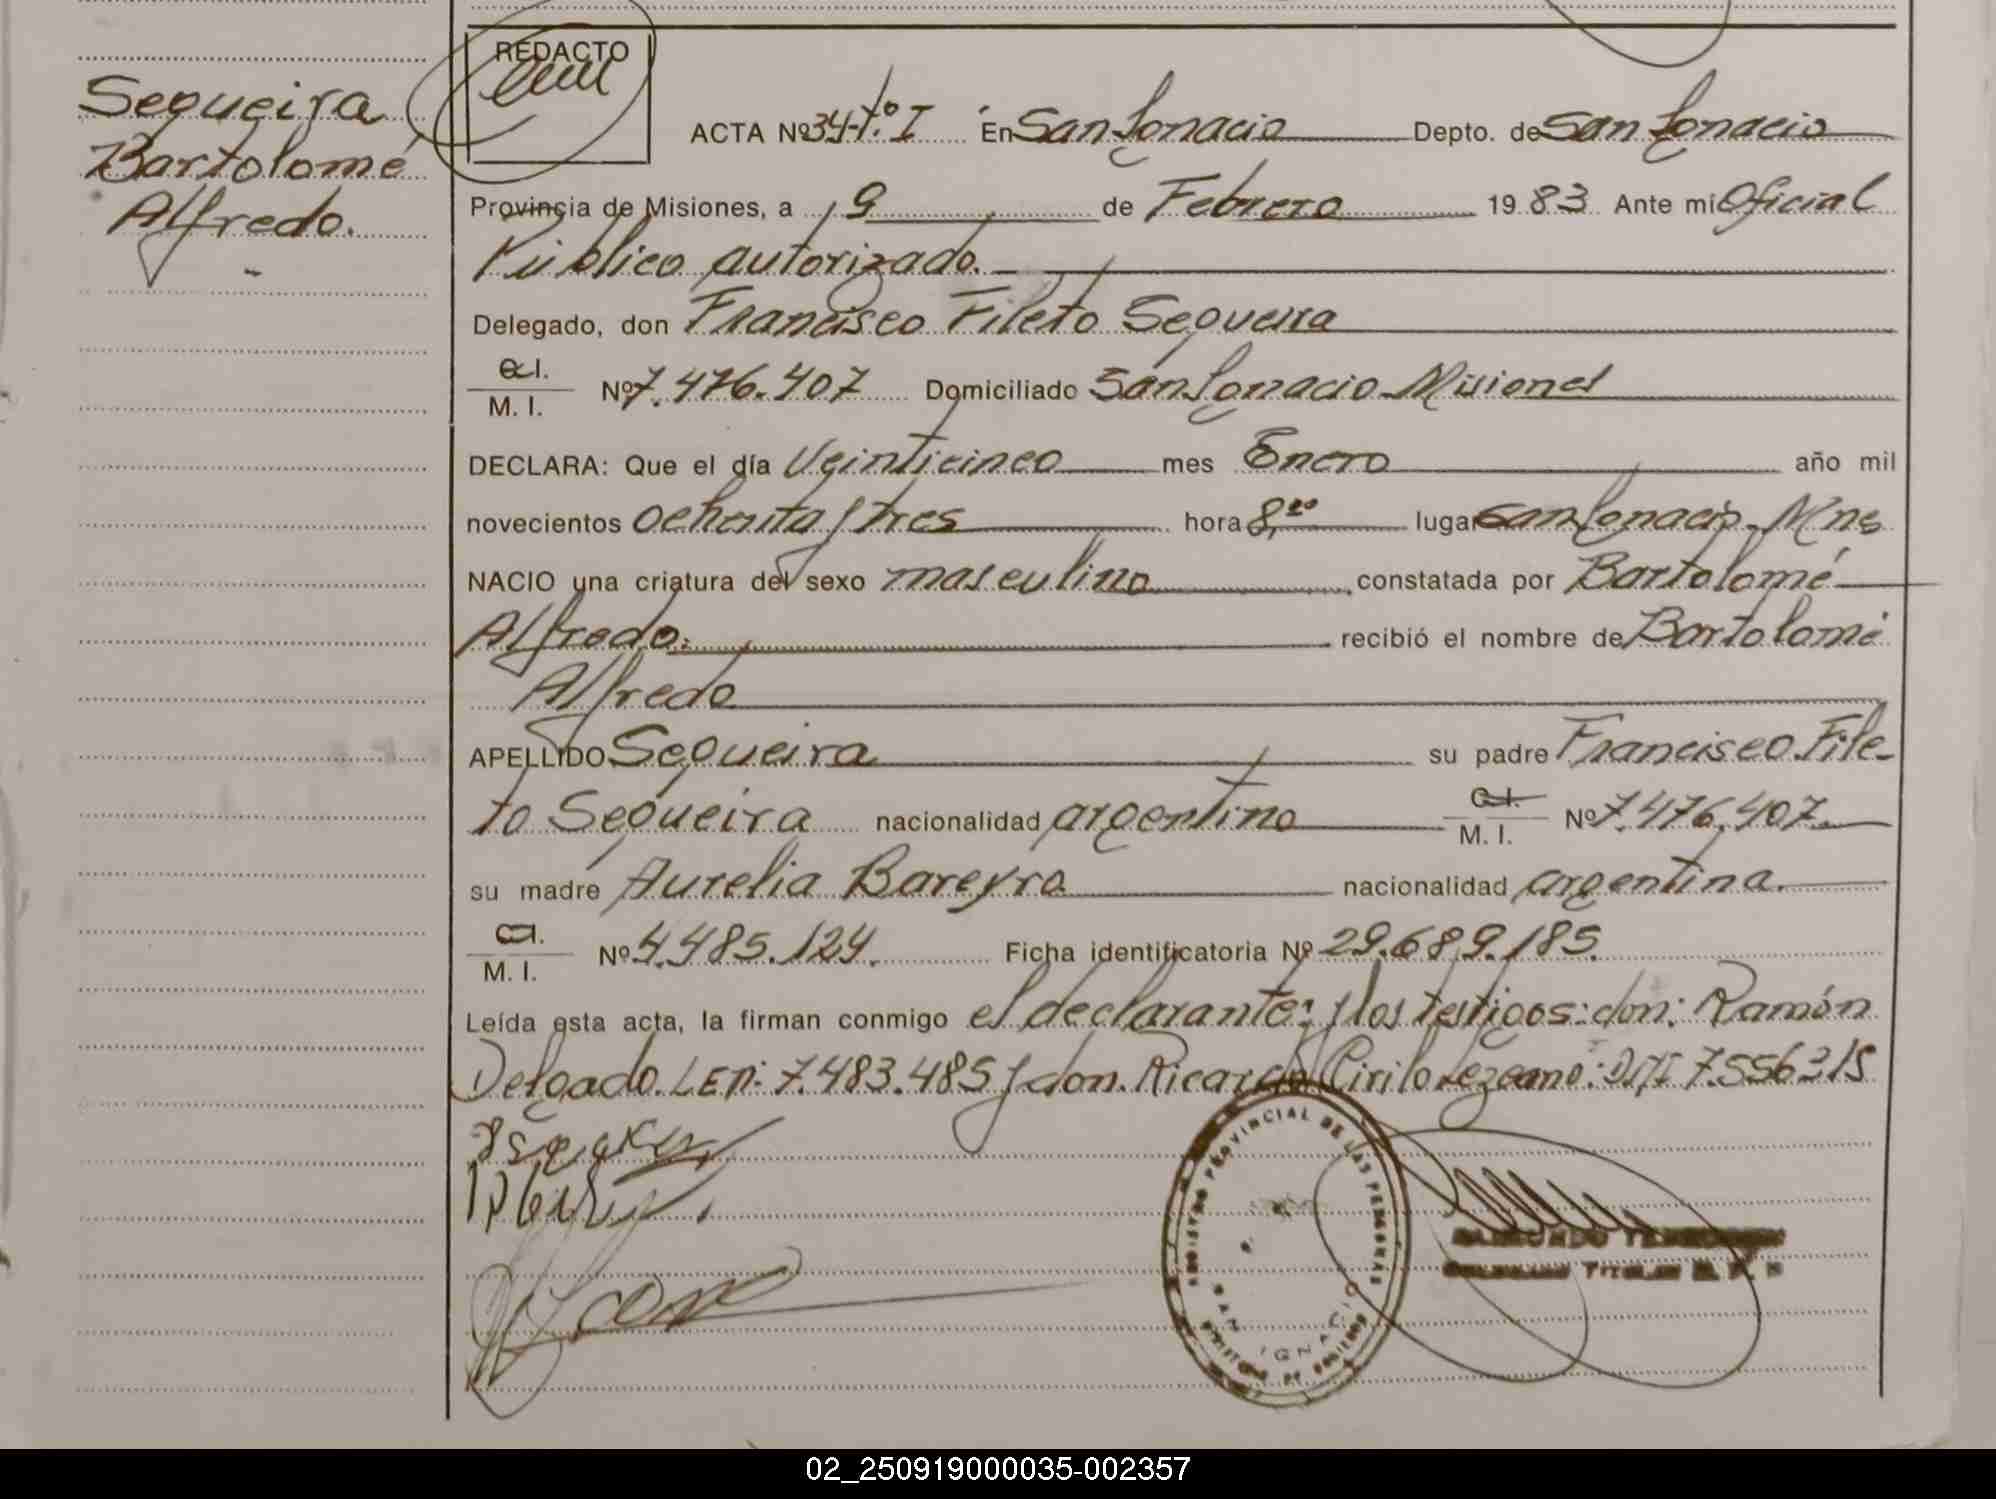 REDACTO
Sequeira
Bartolomé
Alfredo.
ACTA Nº 34-tº I En San Ignacio Depto. de San Ignacio
Provincia de Misiones, a 9 de Febrero 1983 Ante mí Oficial
Público autorizado.
Delegado, don Francisco Fileto Sequeira
C.I. / M. I. Nº 7.476.407 Domiciliado San Ignacio Misiones
DECLARA: Que el día Veinticinco mes Enero año mil
novecientos ochenta y tres hora 8,00 lugar San Ignacio. Mns
NACIO una criatura del sexo masculino constatada por Bartolomé
Alfredo. recibió el nombre de Bartolomé
Alfredo
APELLIDO Sequeira su padre Francisco File-
to Sequeira nacionalidad argentino C.I. / M. I. Nº 7.476.407.
su madre Aurelia Bareyro nacionalidad argentina.
C.I. / M. I. Nº 4.485.124. Ficha identificatoria Nº 29.689.185.
Leída esta acta, la firman conmigo el declarante; y los testigos: don: Ramón
Delgado. LEM: 7.483.485 y don. Ricardo Cirilo Lezcano: DNI 7.556315
REGISTRO PROVINCIAL DE LAS PERSONAS
SAN IGNACIO
02_250919000035-002357